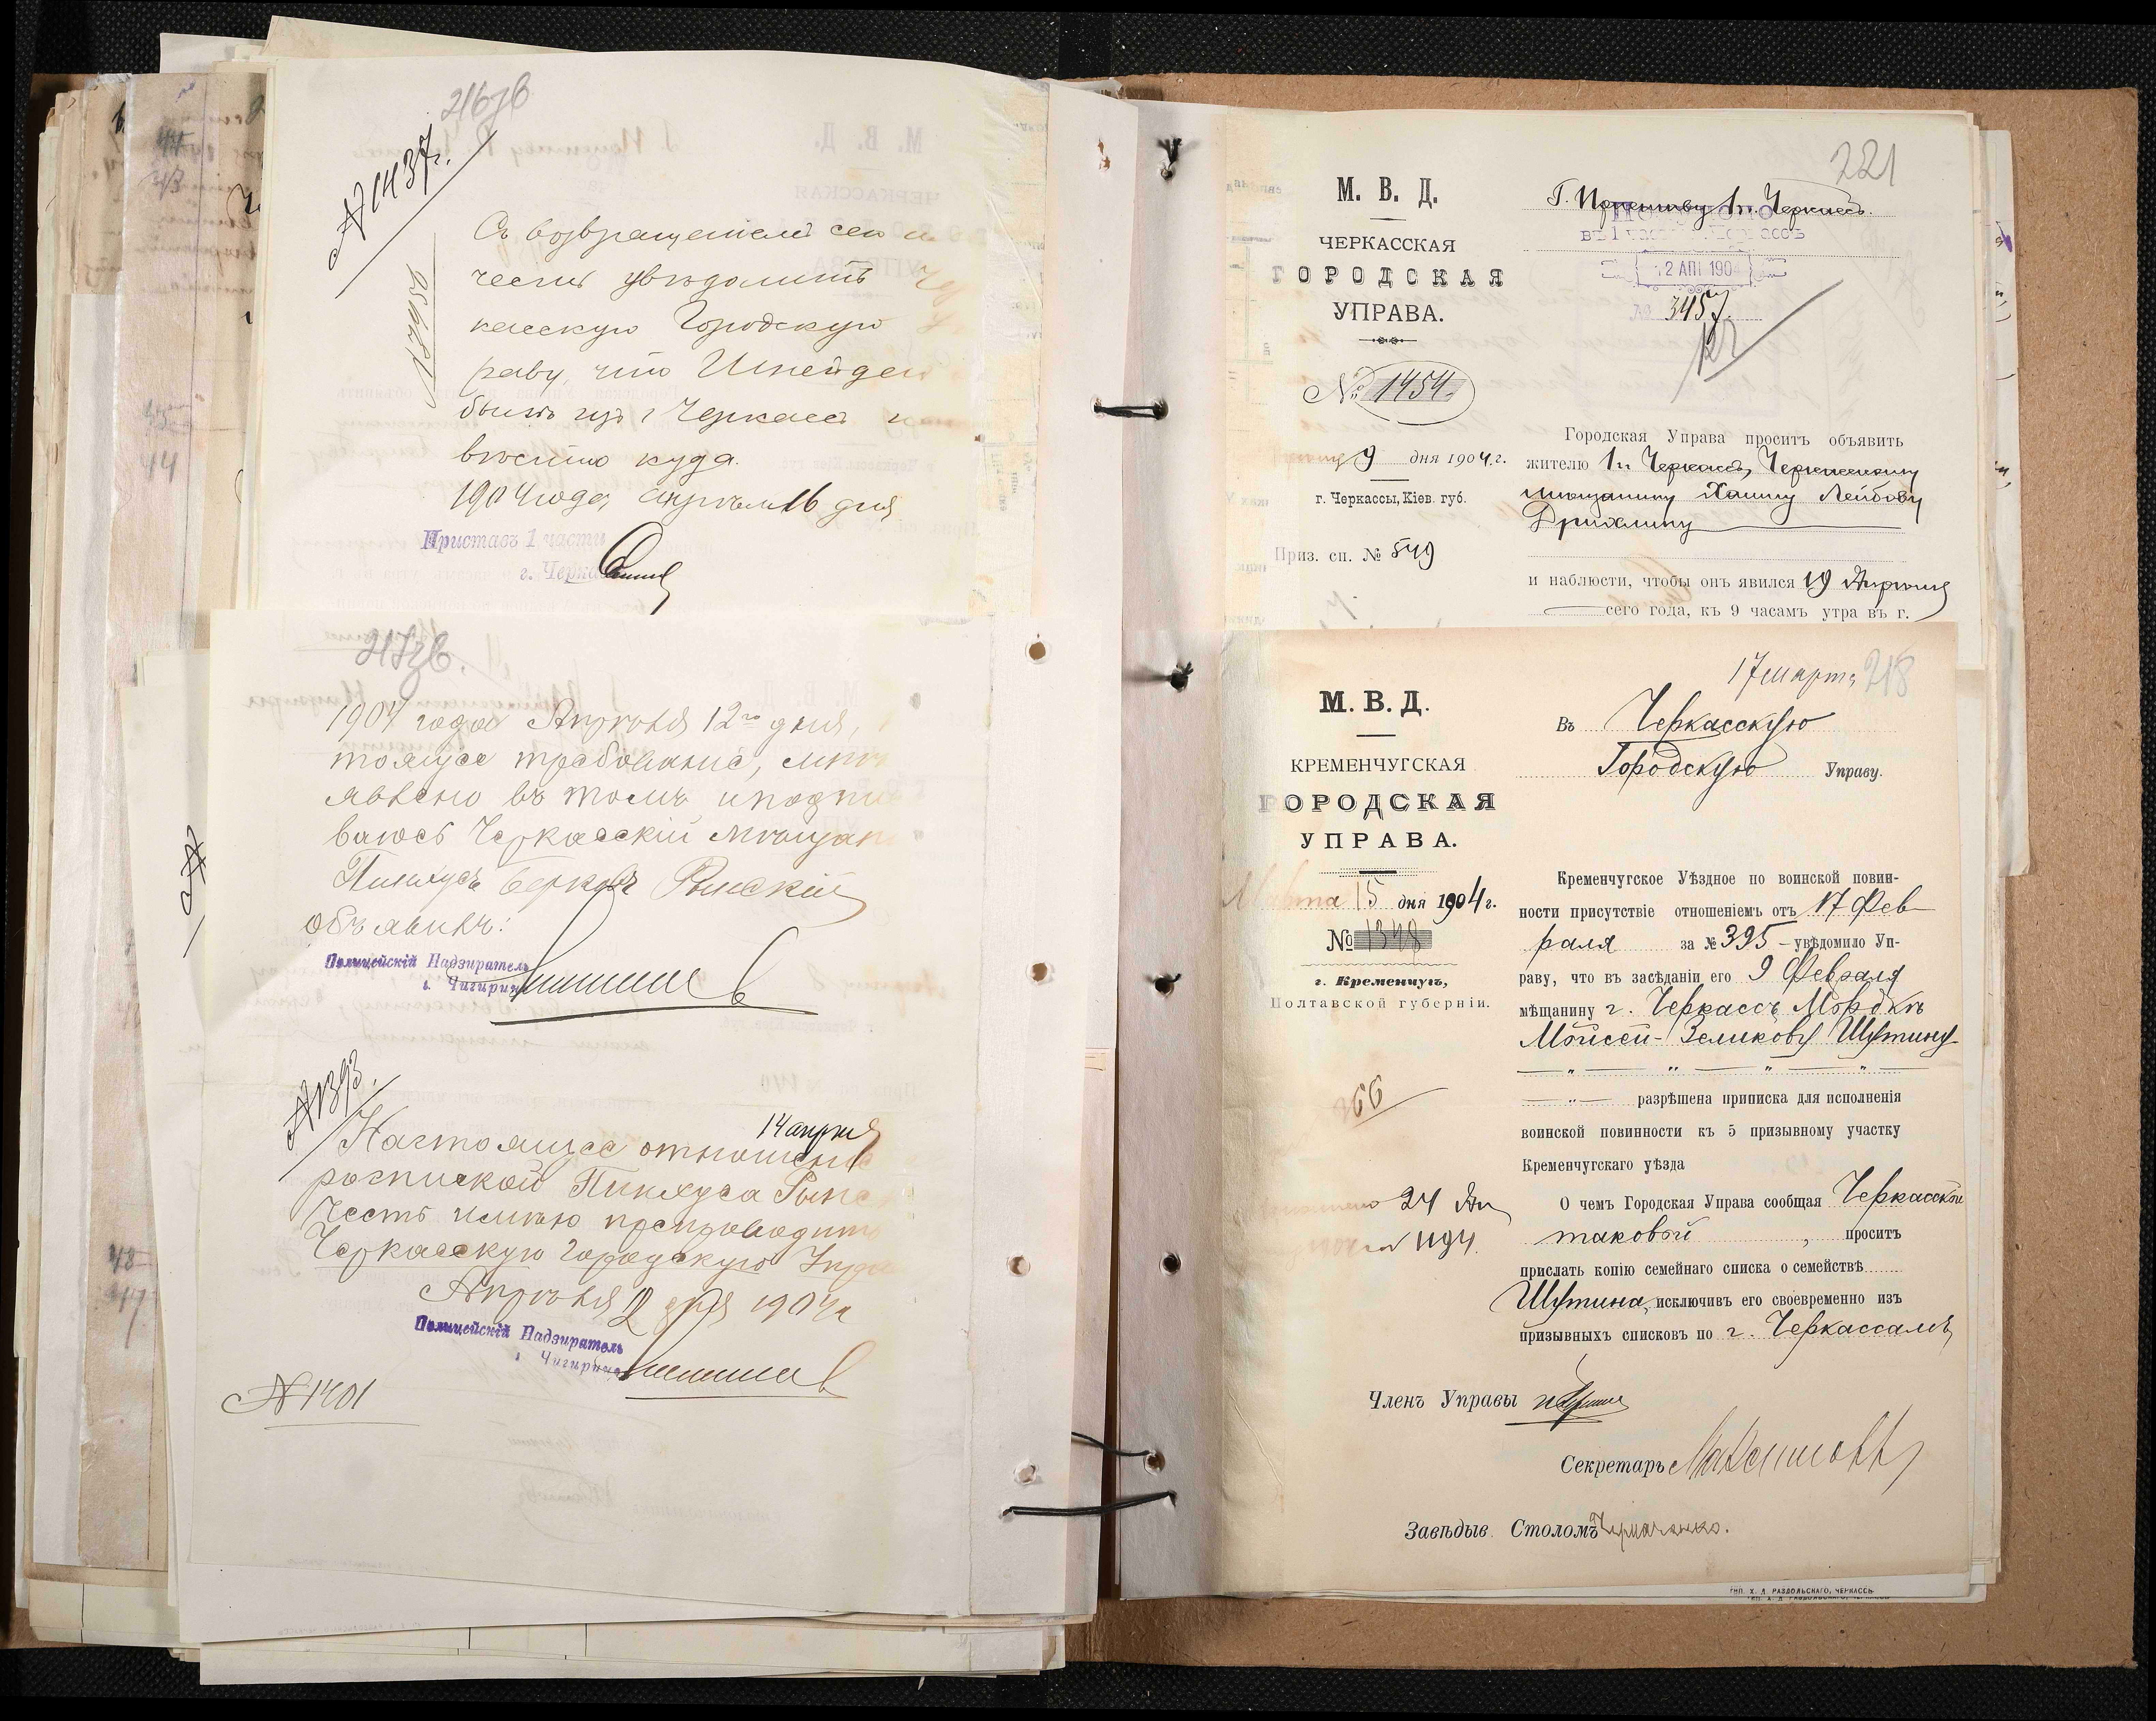 216зв
№ 1437.
Съ возвращеніемъ сего
честь увѣдомить
касскую Городскую
раву, что Шнейдер
былъ изъ г Черкассъ
вѣстно куда.
1904 года, апрѣля 16 дня
Приставъ 1 части
г. Черка
217зв.
1904 года Апрѣля 12го дня,
тоящее требованіе, мнѣ
явлено въ томъ и подпис
ваюсь Черкасскій мѣщан
Пинхусъ Берковъ Рынскій
объявилъ:
Полицейскій Надзиратель
г. Чигирина
№ 1393.
14 апрѣля
Настоящее отношеніе
роспиской Пинхуса Рынс
честь имѣю препроводить
Черкасскую городскую Упра
Апрѣля 12 дня 1904 г
Полицейскій Надзиратель
г. Чигирина
№ 1401
221
М. В. Д.
ЧЕРКАССКАЯ
ГОРОДСКАЯ
УПРАВА.
№ 1454
9 дня 1904 г.
г. Черкассы, Кіев. губ.
Приз. сп. № 549
Г. Приставу 1 ч. Черкассъ.
12 АПР 1904
№ 3457.
Городская Управа проситъ объявить
жителю 1 ч. Черкассъ, Черкасскому
мѣщанину Хаиму Лейбову
Дрихлину
и наблюсти, чтобы онъ явился 19 Апрѣля
сего года, къ 9 часамъ утра въ г.
17 марта 218
М. В. Д.
КРЕМЕНЧУГСКАЯ
ГОРОДСКАЯ
УПРАВА.
Марта 15 дня 1904 г.
№ 1348
г. Кременчугъ,
Полтавской губерніи.
Въ Черкасскую
Городскую Управу.
Кременчугское Уѣздное по воинской повин-
ности присутствіе отношеніемъ отъ 17 Фев-
раля за № 395 – увѣдомило Уп-
раву, что въ засѣданіи его 9 Февраля
мѣщанину г. Черкассъ Мордкѣ
Мойсей-Зеликову Шутину
разрѣшена приписка для исполненія
воинской повинности къ 5 призывному участку
Кременчугскаго уѣзда
О чемъ Городская Управа сообщая Черкасской
таковой, проситъ
прислать копію семейнаго списка о семействѣ
Шутина, исключивъ его своевременно изъ
призывныхъ списковъ по г. Черкассамъ
66
24 Ап
1194.
Членъ Управы
Секретарь
Завѣдыв. Столомъ
ТИП. Х. Д. РАЗДОЛЬСКАГО, ЧЕРКАССЫ